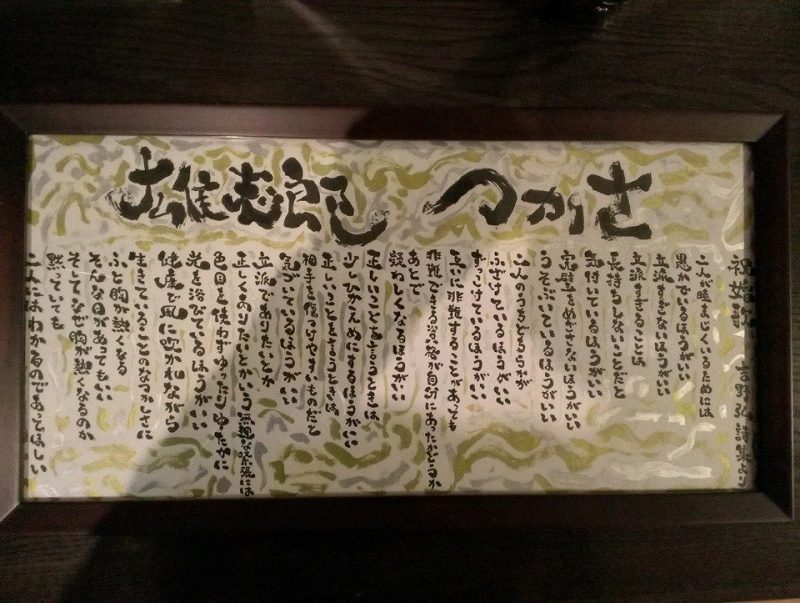 雄志郎 つかさ
祝婚歌 吉野弘詩集より
二人が睦まじくいるためには
愚かでいるほうがいい
立派すぎないほうがいい
立派すぎることは
長持ちしないことだと
気付いているほうがいい
完璧をめざさないほうがいい
うそぶいているほうがいい
二人のうちどちらかが
ふざけているほうがいい
ずっこけているほうがいい
互いに非難することがあっても
非難できる資格が自分にあったかどうか
あとで
疑わしくなるほうがいい
正しいことを言うときは
少しひかえめにするほうがいい
正しいことを言うときは
相手を傷つけやすいものだと
気づいているほうがいい
立派でありたいとか
正しくありたいとかいう無理な緊張には
色目を使わずゆったりゆたかに
光を浴びているほうがいい
健康で風に吹かれながら
生きていることのなつかしさに
ふと胸が熱くなる
そんな日があってもいい
そしてなぜ胸が熱くなるのか
黙っていても
二人にはわかるのであってほしい